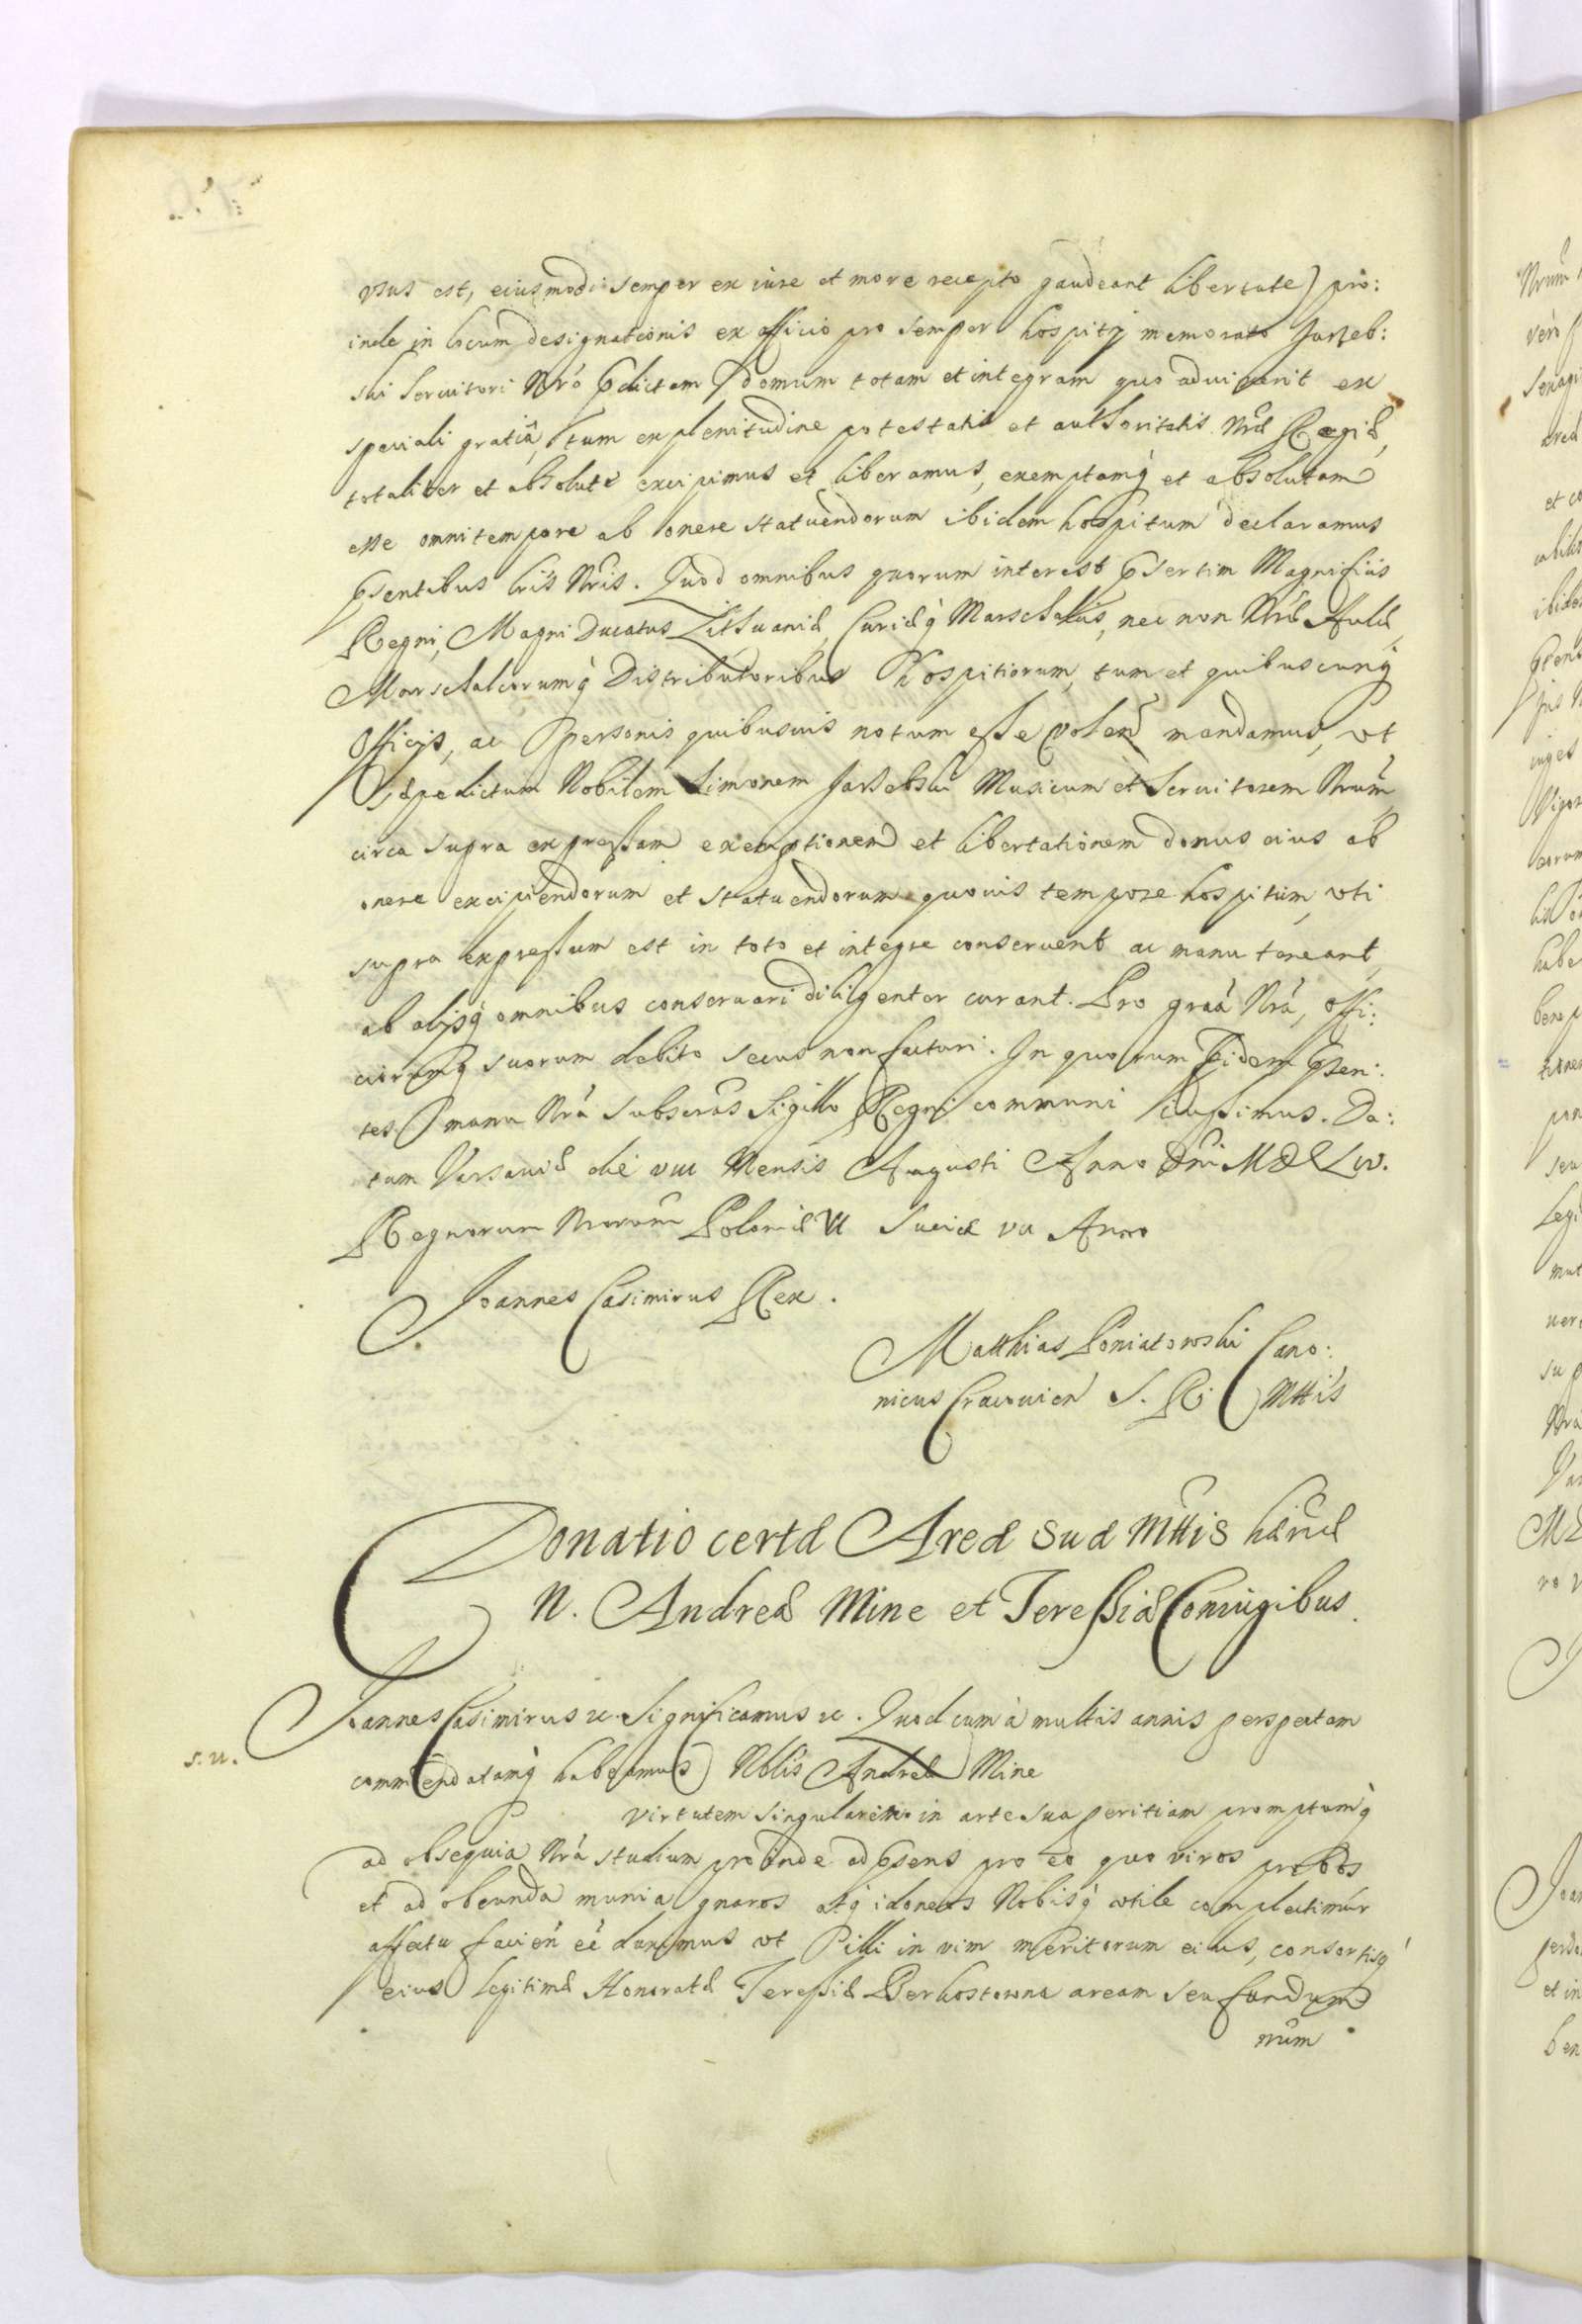 vsus est, eiusmodi semper ex iure et more recepto gaudeant libertate) pro:
inde in locum designationis ex officio pro semper hospitij memorato Jarzeb:
ski Servitori Nrõ prædictam domum totam et integram quo advixerit ex
speciali gratiâ, tum ex plenitudine potestatis et authoritatis Nræ Regiæ,
totaliter et absolute excipimus et liberamus, exemptamq́ et absolutam
esse omni tempore ab onere statuendorum ibidem hospitum declaramus
præsentibus lris Nris. Quod omnibus quorum interest præsertim Magnificis
Regni, Magni Ducatus Lithuaniæ, Curiæq́ Marschalcis, nec non Nræ Aulæ,
Marschalcorumq́ Distributoribus Hospitiorum, tum et quibuscunq́
Officijs, ac personis quibusuis notum esse volen mandamus, vt
Sæpedictum Nobilem Simonem Jarzebski Musicum et Seruitorem Nrum,
circa supra expressam exemptionem et libertationem domus eius ab
onere excipiendorum et statuendorum quouis tempore hospitum, vti
supra expressum est in toto et integre conseruent ac manu teneant,
ab alijsq́ omnibus conseruari diligenter curant. Pro graâ Nrâ, offi:
ciorumq́ suorum debito secus non facturi. In quorum fidem præsen:
tes manu Nrâ subscras Sigillo Regni communi iussimus. Da:
tum Varsauiæ die VIII Mensis Augusti Anno Dni MDCLIV.
Regnorum Nrorum Poloniæ VI Sueciæ VII Anno
Joannes Casimirus Rex.
Matthias Poniatowski Cano:
nicus Cracouien S. R. Mttis
Donatio certæ Areæ Suæ Mttis
N. Andreæ Mine et Teressiæ Coniugibus.
Joannes Casimirus etc. Significamus etc. Quod cum à multis annis perspectam
s. n.
commendatamq́ habeamus Nblis Andreæ Mine
virtutem singularem in arte sua peritiam promptumq́
ad obsequia Nrâ studium proinde ad præsens pro eo quo viros probos
et ad obeunda munia gnaros atq́ idoneos Nobisq́ vtile complectimur
affectu facien eê duximus vt illi in vim meritorum eius, consortisq́
eius legitimæ Honoratæ Teressiæ Perkostowna aream seu fundum
nrum